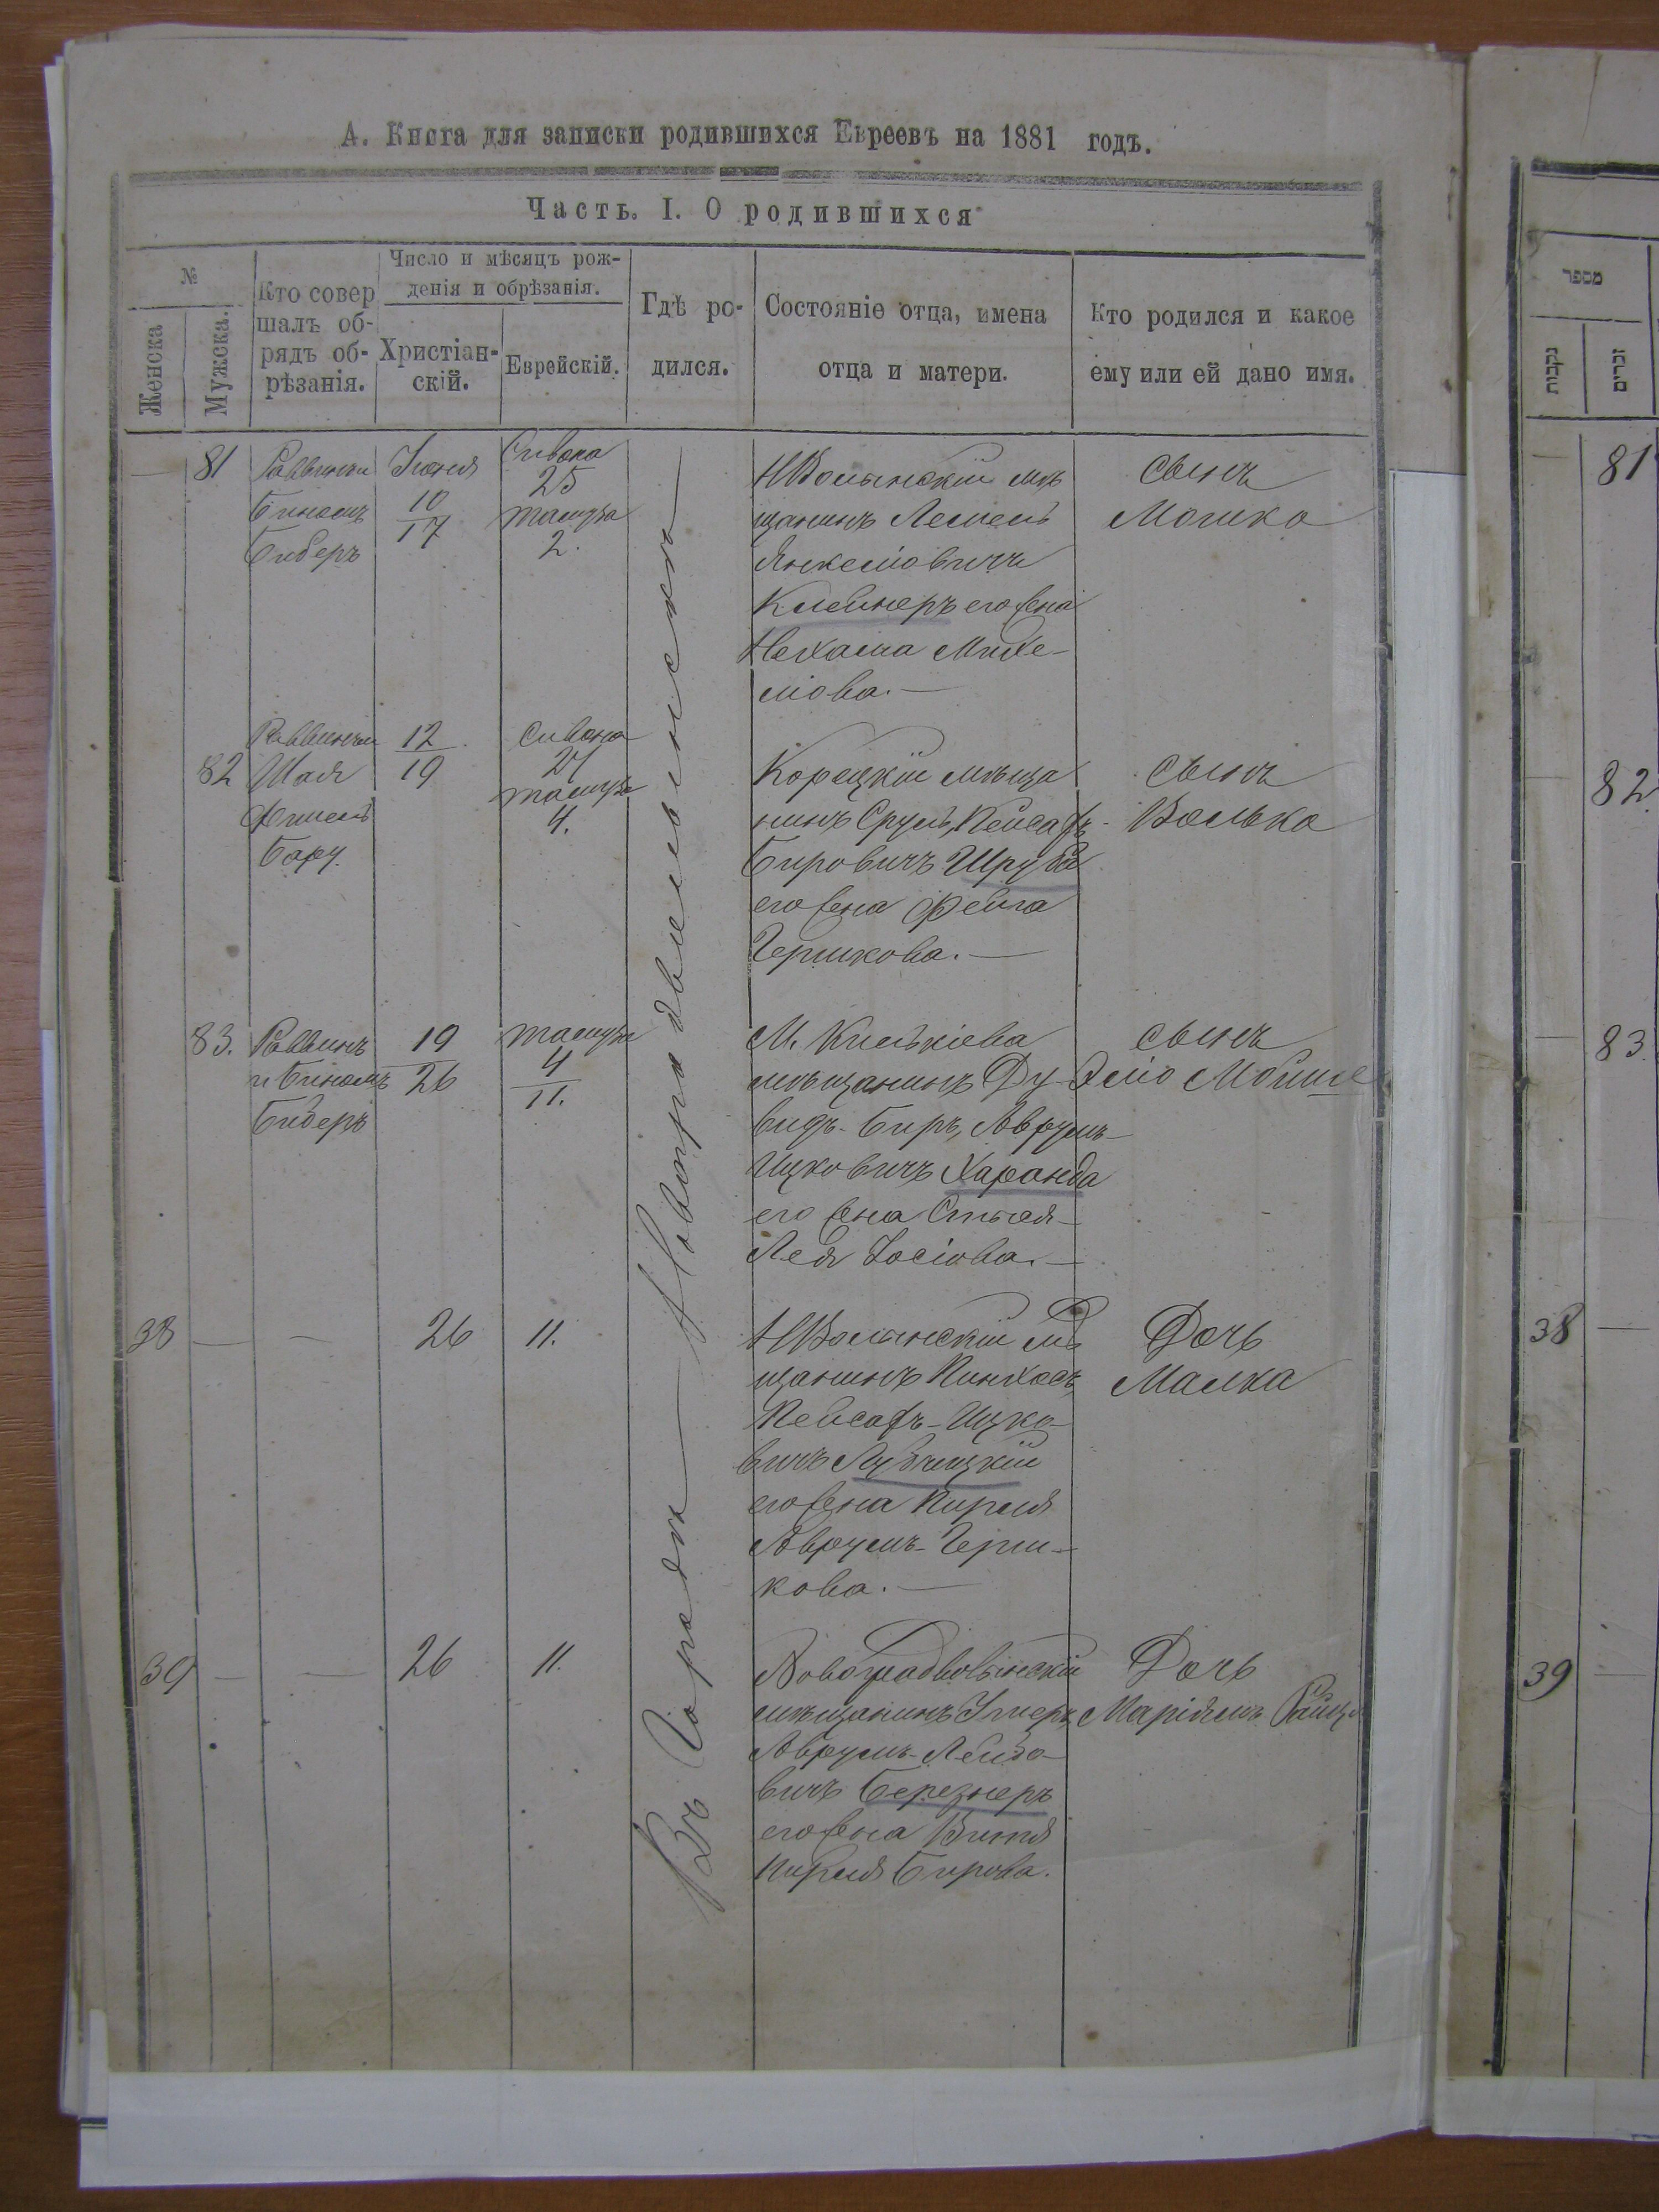 А. Книга для записки родившихся Евреевъ на 1881 годъ.
Часть. I. О родившихся
№
Женска
Мужска.
Кто совер
шалъ об-
рядъ об-
рѣзанія.
Число и мѣсяцъ рож-
денія и обрѣзанія.
Христіан-
скій.
Еврейскій.
Гдѣ ро-
дился.
Состояніе отца, имена
отца и матери.
Кто родился и какое
ему или ей дано имя.
Въ Городѣ Новоградволынскѣ
— 81
Бинемъ
Биберъ
Іюня
10
17
Сивана
25
тамуза
2.
НВолынскій мѣ
щанинъ Лемель
Янкеліовичъ
Клейнеръ его жена
Нехама Михе-
ліова. —
сынъ
Мошко
82
Шая
Фишель
12
19
Сивана
27
тамуза
4.
Корецкій мѣща
нинъ Сруль, Пейсахъ-
Бировичъ
его жена Фейга
Гершкова. —
сынъ
Волько
83.
Раввинъ
и Бинемъ
Биберъ
19
26
тамуза
4
11.
мѣщанинъ Ду
видъ-Беръ, Аврумъ-
Ицковичъ Харанда
его жена
Лея Іосіова. —
сынъ
Эліо Мойше
38 — —
26
11.
НВолынскій мѣ
щанинъ Пинхосъ
Пейсахъ-Ицко-
вичъ
его жена Перля
Аврумъ-Герш-
кова. —
Дочь
Малка
39 — —
26
11.
Новоградволынскій
мѣщанинъ
Аврумъ-Лейзо-
вичъ Березнеръ
его жена
Бирова.
Дочь
Маріямъ
מספר
נקבות
זכרים
— 81
— 82
— 83
38 —
39 —